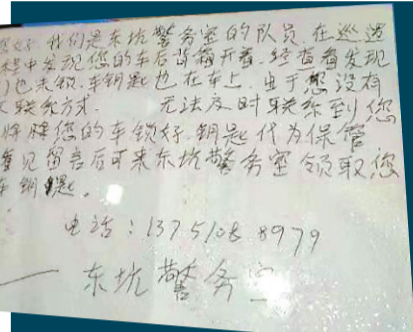 您好，我们是东坑警务室的队员，在巡逻
程中发现您的车后背箱开着，经查看发现
门也未锁，车钥匙也在车上，由于您没有
联系方式， 无法及时联系到您
将您的车锁好，钥匙代为保管
见留言后可来东坑警务室领取您
车钥匙。
电话：137 5108 8979
— 东坑警务室